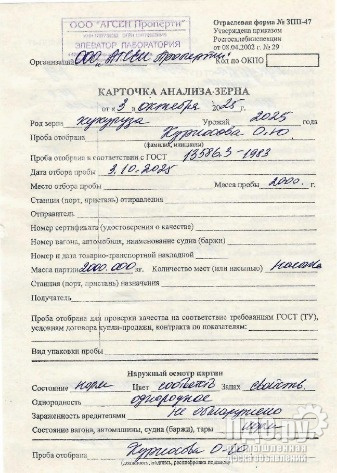 ООО "АГСЕН Проперти"
ЭЛЕВАТОР ЛАБОРАТОРИЯ
Отраслевая форма № ЗПП-47
Утверждена приказом
Росгосхлебинспекции
от 08.04.2002 г. № 29
Организация ООО „Агсен Проперти"
Код по ОКПО
КАРТОЧКА АНАЛИЗА ЗЕРНА
от « 3 » октября 2025 г.
Род зерна кукуруза Урожай 2025 года
Проба отобрана О.Ю
(фамилия, инициалы)
Проба отобрана в соответствии с ГОСТ 13586.3-1983
Дата отбора пробы 3.10.2025
Место отбора пробы Масса пробы 2000. г.
Станция (порт, пристань) отправления
Отправитель
Номер сертификата (удостоверения о качестве)
Номер вагона, автомобиля, наименование судна (баржи)
Номер и дата товарно-транспортной накладной
Масса партии 2000.000 кг. Количество мест (или насыпью)
Станция (порт, пристань) назначения
Получатель
Проба отобрана для проверки качества на соответствие требованиям ГОСТ (ТУ),
условиям договора купли-продажи, контракта по показателям:
Вид упаковки пробы
Наружный осмотр партии
Состояние норм Цвет Запах свойств.
Однородность однородное
Зараженность вредителями не обнаружено
Состояние вагона, автомашины, судна (баржи), тары норм
Проба отобрана
(должность, подпись, расшифровка подписи)